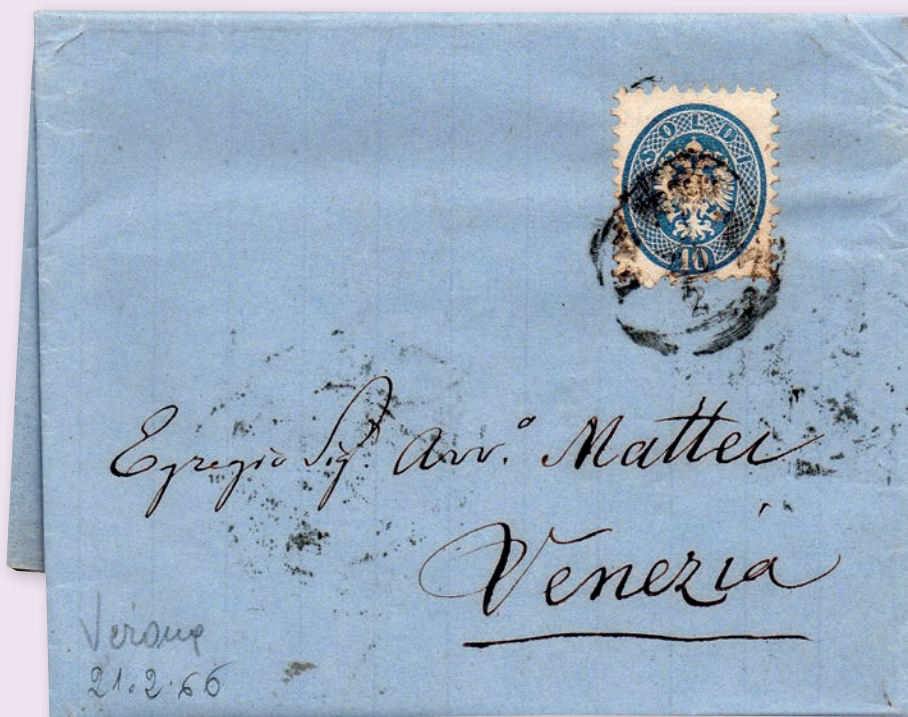 SOLDI
10
2
Egregio Sigr. Avv.º Mattei
Venezia
Verona
21.2.66